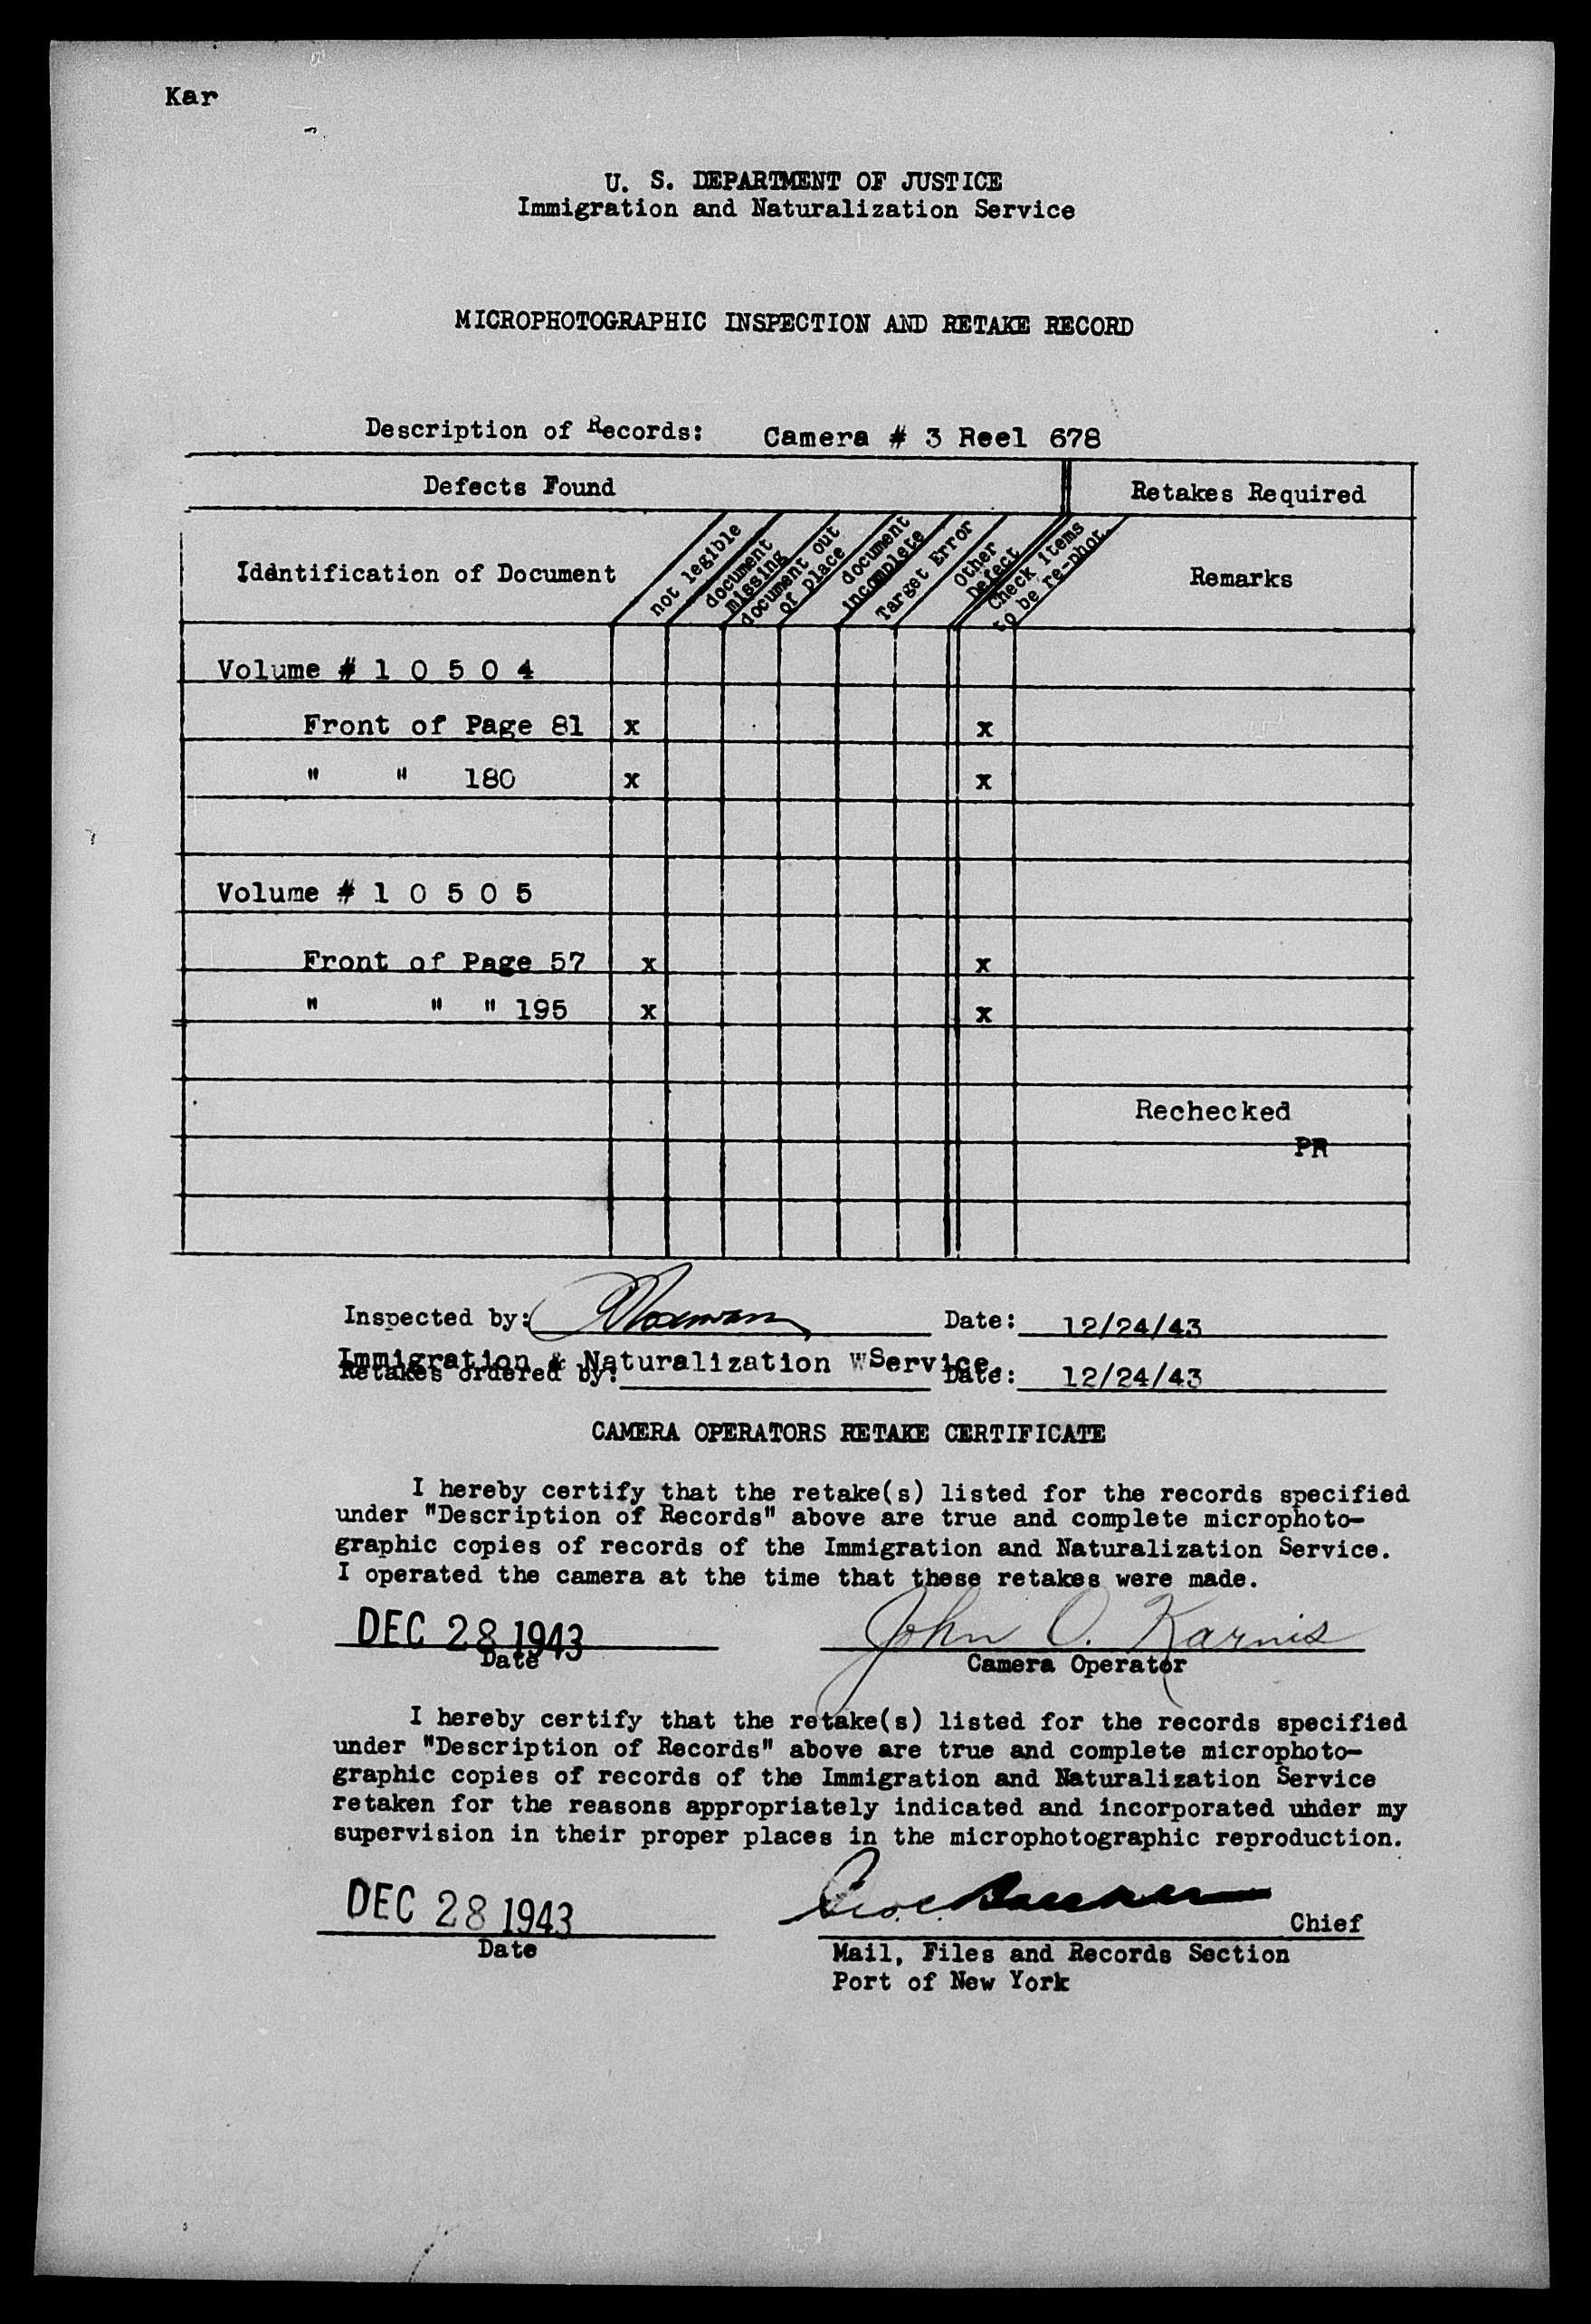 Kar
U. S. DEPARTMENT OF JUSTICE
Immigration and Naturalization Service
MICROPHOTOGRAPHIC INSPECTION AND RETAKE RECORD
Description of Records: Camera # 3 Reel 678
Defects Found
Retakes Required
Iddntification of Document
not legible
document
missing
document out
of place
document
incomplete
Target Error
Other
Defect
Check items
to be re-phot.
Remarks
Volume # 1 0 5 0 4
Front of Page 81 x x
" " 180 x x
Volume # 1 0 5 0 5
Front of Page 57 x x
" " " 195 x x
Rechecked
PR
Inspected by: Date: 12/24/43
Immigration & Naturalization WService.
Retakes ordered by: Date: 12/24/43
CAMERA OPERATORS RETAKE CERTIFICATE
I hereby certify that the retake(s) listed for the records specified
under "Description of Records" above are true and complete microphoto-
graphic copies of records of the Immigration and Naturalization Service.
I operated the camera at the time that these retakes were made.
DEC 28 1943 John O. Karnis
Date Camera Operator
I hereby certify that the retake(s) listed for the records specified
under "Description of Records" above are true and complete microphoto-
graphic copies of records of the Immigration and Naturalization Service
retaken for the reasons appropriately indicated and incorporated uhder my
supervision in their proper places in the microphotographic reproduction.
DEC 28 1943
Chief
Date
Mail, Files and Records Section
Port of New York